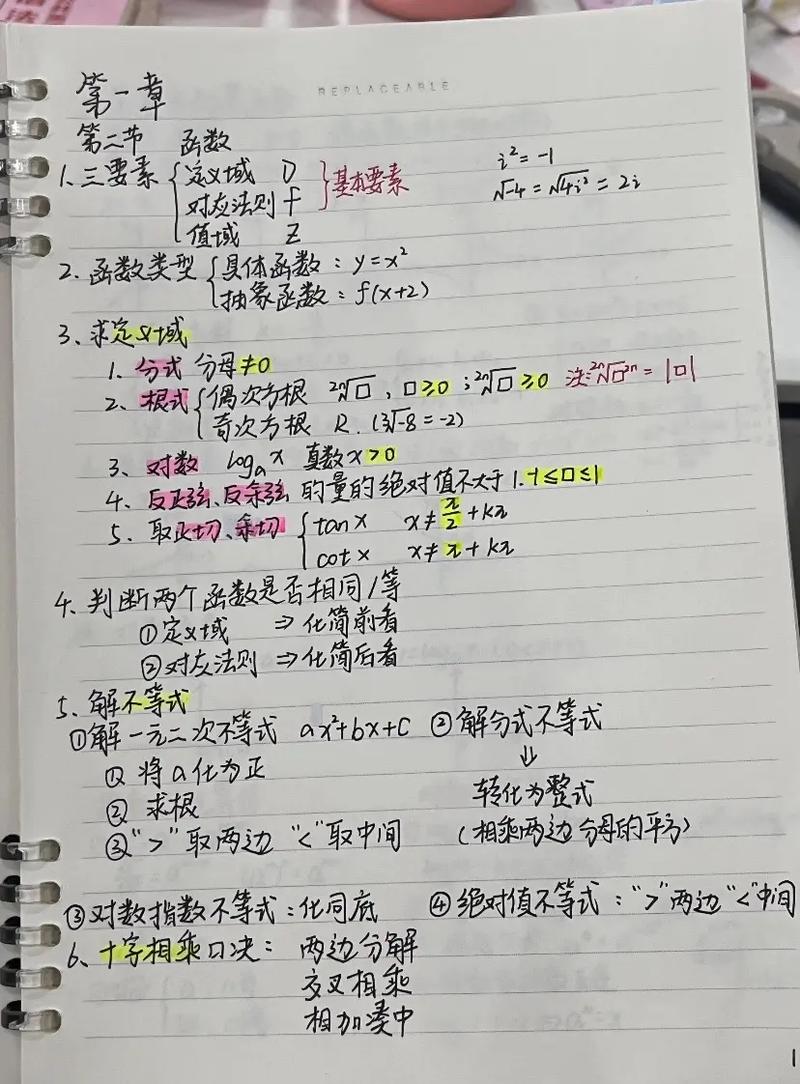 REPLACEABLE
第一章
第二节 函数
1、三要素 { 定义域 D } 基本要素
对应法则 f
值域 Z
i²=-1
√-4 = √4i² = 2i
2、函数类型 { 具体函数：y=x²
抽象函数：f(x+2)
3、求定义域
1、分式 分母≠0
2、根式 { 偶次方根 ²ⁿ√□ , □≥0 ; ²ⁿ√□ ≥0 注:²ⁿ√□²ⁿ = |□|
奇次方根 R. (³√-8=-2)
3、对数 logₐx 真数x>0
4、反正弦、反余弦 的量的绝对值不大于1. -1≤□≤1
5、取正切、余切 { tanx x≠π/2+kπ
cotx x≠π+kπ
4、判断两个函数是否相同/等
①定义域 ⇒化简前看
②对应法则 ⇒化简后看
5、解不等式
①解一元二次不等式 ax²+bx+c
①将a化为正
②求根
③“>”取两边 “<”取中间
②解分式不等式
⇓
转化为整式
(相乘两边分母的平方)
③对数指数不等式：化同底
④绝对值不等式：“>”两边“<”中间
6、十字相乘口决： 两边分解
交叉相乘
相加凑中
1